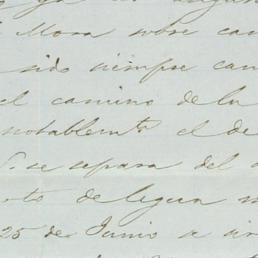 Mora sobre cam
sido siempre cam
el camino de la
notablemte el de
S. se separa del
rto de legua
25 de Junio a